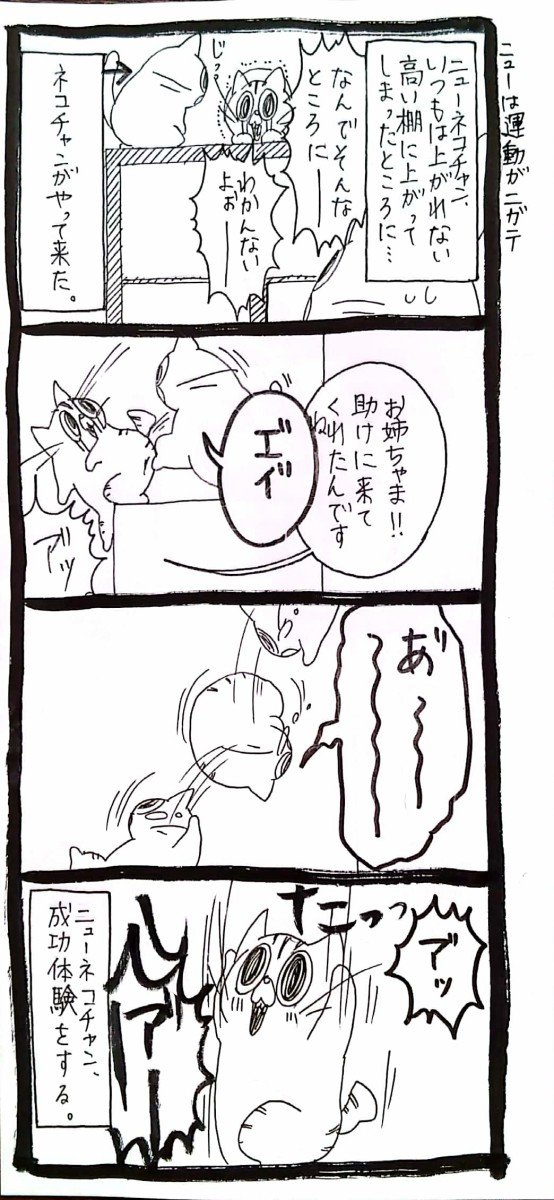 ニューは運動がニガテ
ニューネコチャン、
いつもは上がれない
高い棚に上がって
しまったところに…
なんでそんな
ところにー
じっ
わかんない
よぉー
ネコチャンがやって来た。
お姉ちゃま!!
助けに来て
くれたんです
ね
エイ
アッ
あ゛〜〜
アッ
ナニっっ
ルアー
ニューネコチャン、
成功体験をする。